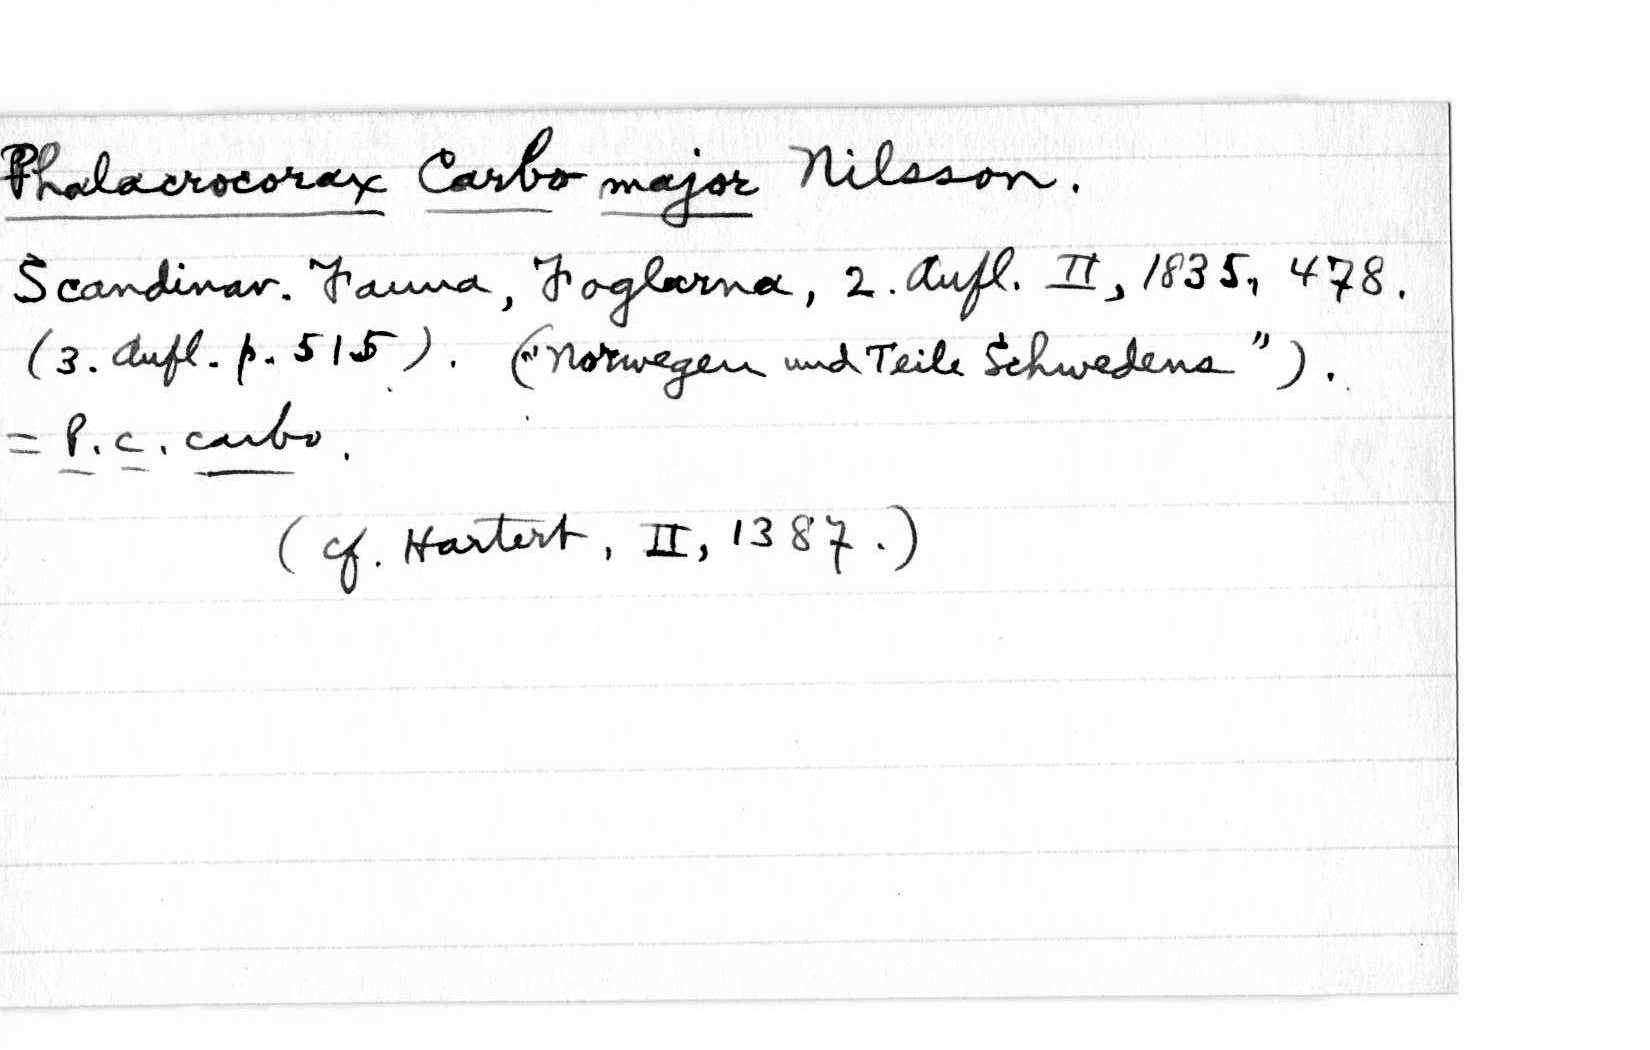 Phalacrocorax Carbo major Nilsson.
Scandinav. Fauna, Foglarna, 2. Aufl. II, 1835, 478.
(3. Aufl. p. 515). ("Norwegen und Teile Schwedens").
= P. c. carbo.
(cf. Hartert, II, 1387.)